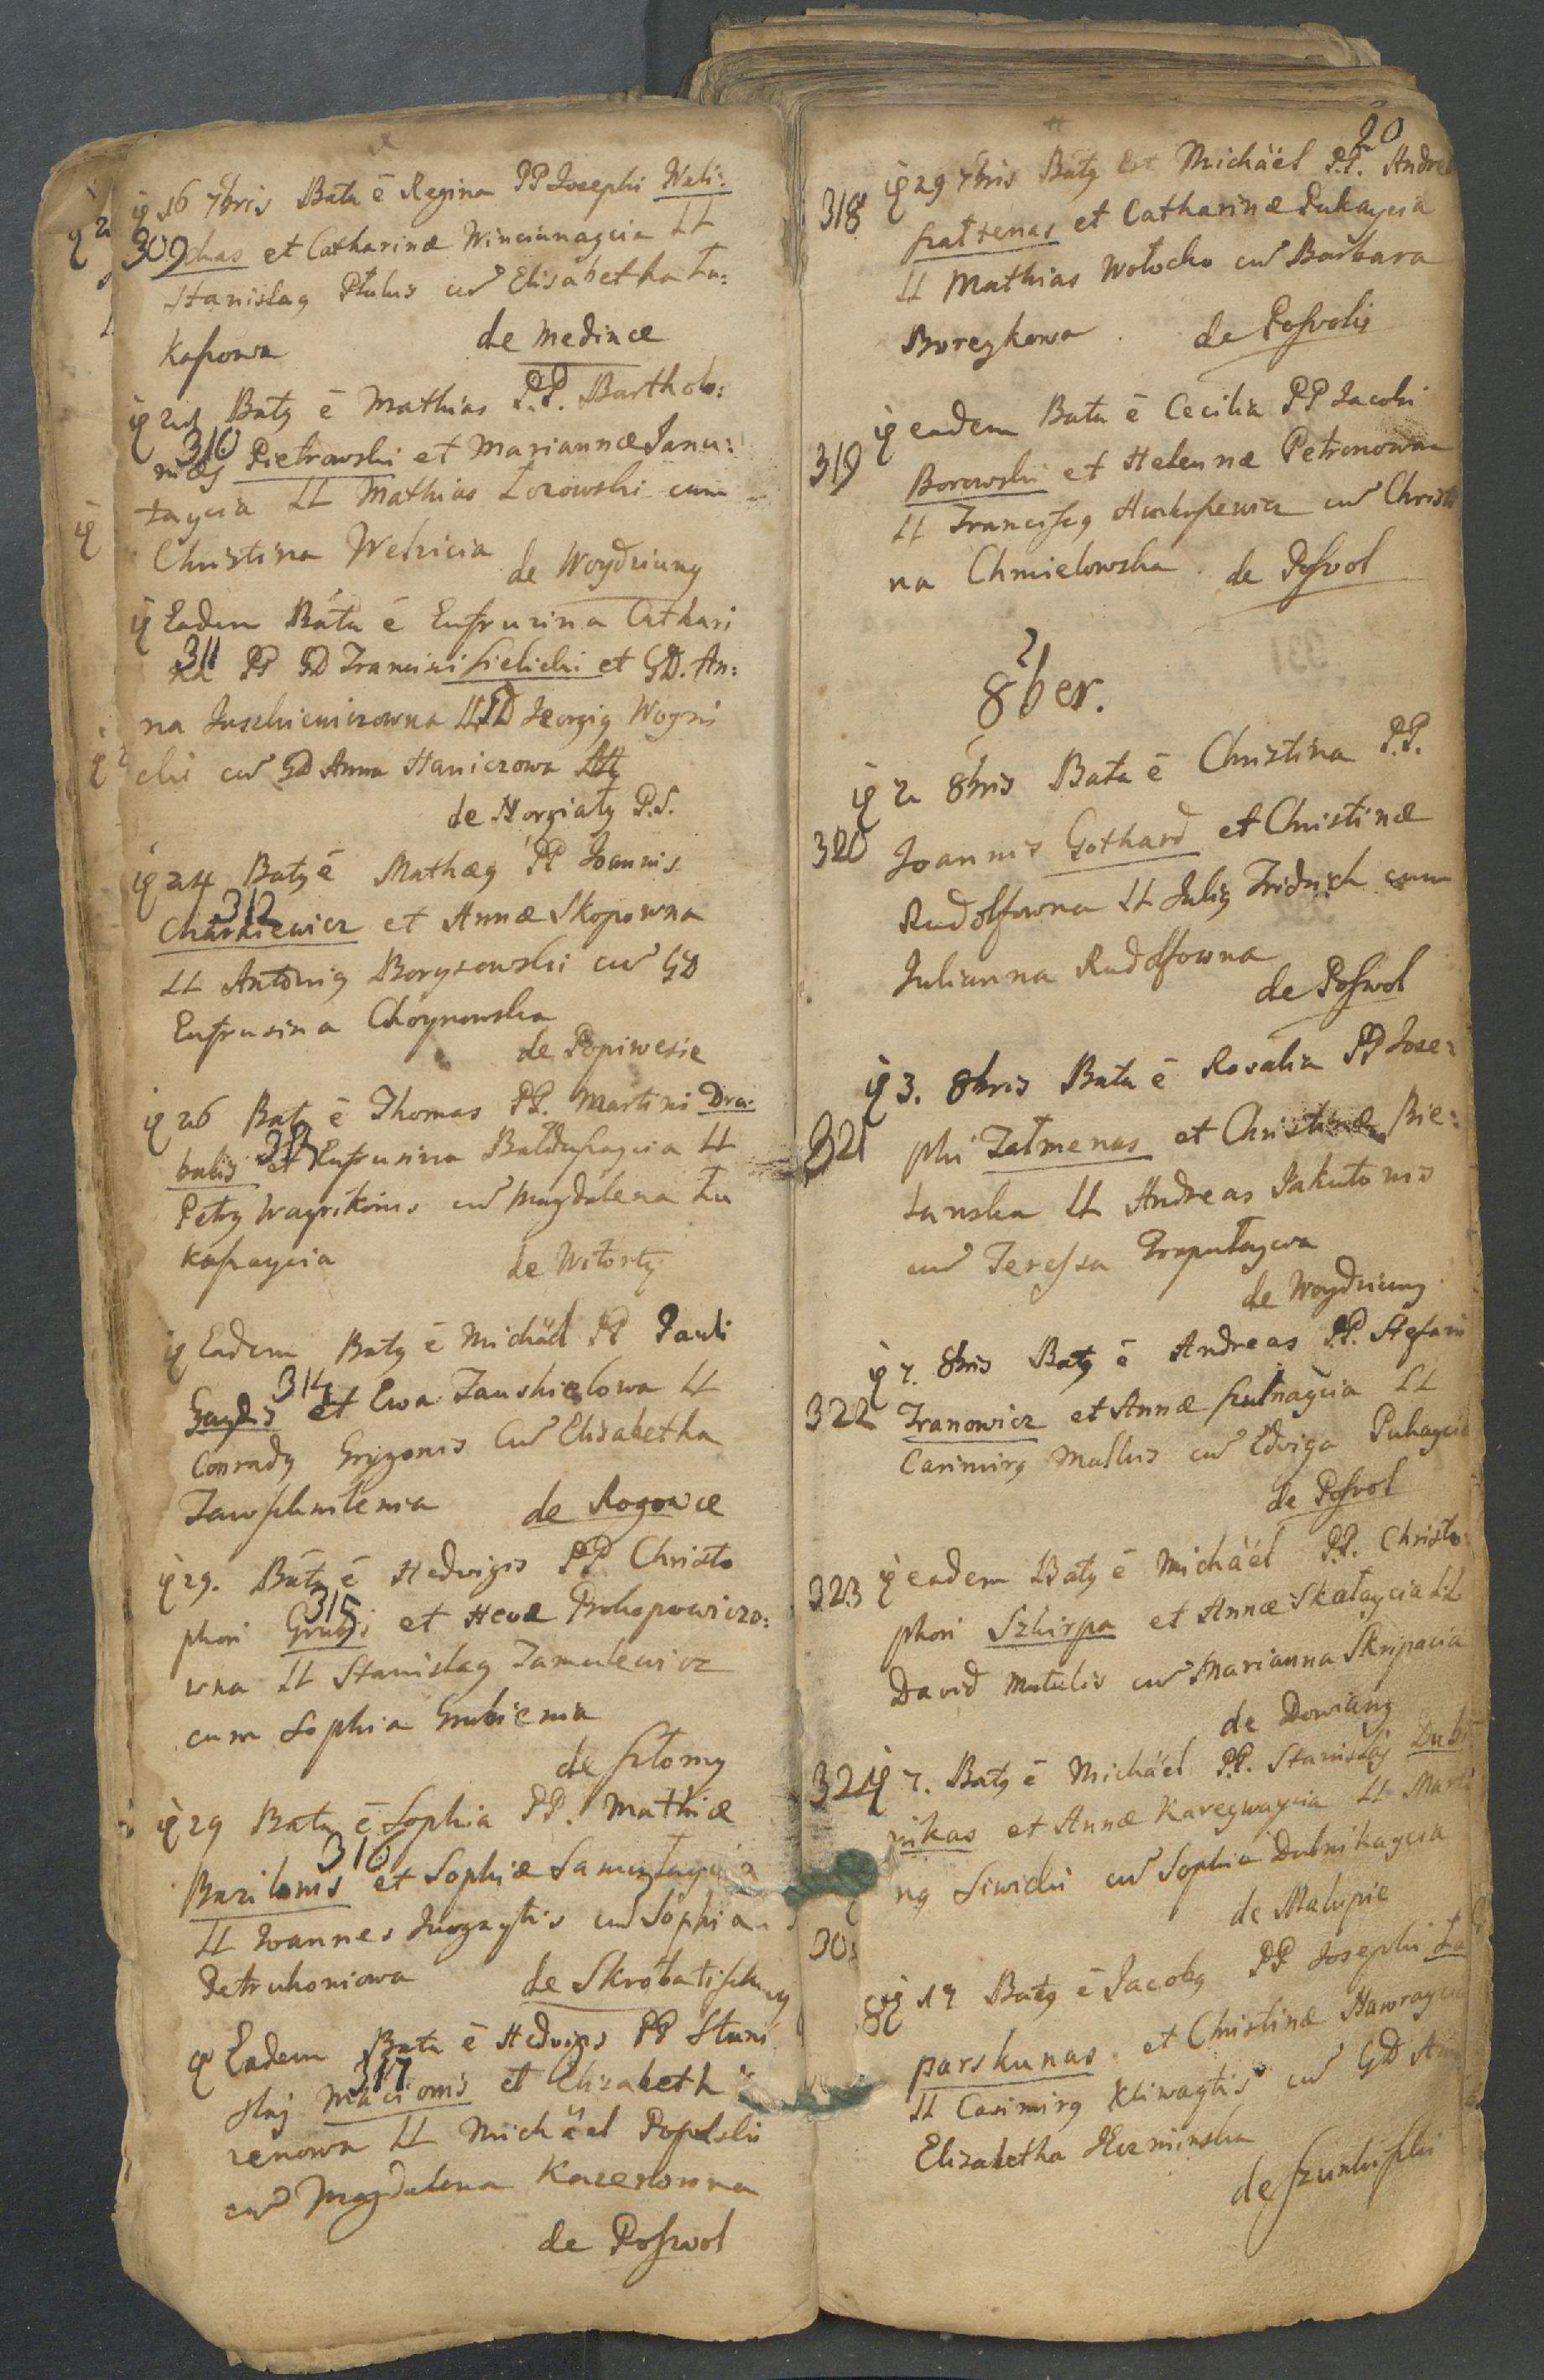 16 7bris Bata ē Regina PP Josephi Weli:
309 chas et Catharinæ Winciunaycia LL
Stanislaq Ptulus cu Elisabetha Łu:
kaszowa de Medince
Batq ē Mathias P.P. Bartholo:
310
mæj Pietrowski et Mariannæ Janu:
taycia LL Mathias Łozowski cum
Christina Welzicia
de Woydziuny
Eadem Bata ē Eufruzina Cathari
311
na PP GD Francisci Sielicki et GD. An:
na Juszkiewiczowna LL GD Georgiq Woyni
cki cu GD Anna Haniczowa
de Norgiały P.S.
24 Batq ē Mathæq PP Joannis
312
Charkiewicz et Annæ Skopowna
LL Antoniq Boryzowski cu GD
Eufruzina Choynowska
de Popiwesie
26 Batq ē Thomas PP. Martini Dra:
bulis et Eufruzina Bałduszaycia LL
Petrq Wayrikonis cu Magdalena Łu
kaszaycia de Witorty
Eadem Batq ē Michäel PP Pauli
314
Gaydys et Ewa Januskielowa LL
Conradq Gryzonis Cu Elisabetha
de Rogowce
29. Bata ē Hedvigis PP Christo
315
phori Grubij et Hevæ Prokopowiczo:
wna LL Stanislaq Zamulewicz
cum Sophia Grubienia
de Szłomy
29 Bata ē Sophia PP. Mathiæ
316
Bazilonis et Sophiæ Samuytaycia
LL Joannes Juozaytis cu Sophia
Petrukoniowa de Skrobatiszkuny
Eadem Bata ē Hedvigis PP Stani
317
slaj Macionis et Elisabeth
zenowa LL Michäel Popelski
cu Magdalena Kacerowna
de Poszwol
20
318 29 7bris Batq est Michäel P.P. Andreæ
Szattenas et Catharinæ Pukaycia
LL Mathias Wołocko cu Barbara
Boreykowa. de Poszvolij
eadem Bata ē Cecilia PP Jacobi
319 Borowski et Helennæ Petronowna
LL Franciscq Hurkszewicz cu Christi
na Chmielowska. de Poszvol
8ber.
2 8bris Bata ē Christina P.P.
320 Joannis Gothard et Christinæ
Rudolfowna LL Juliq Fridrich cum
Julianna Rudolfowna
de Poszwol
3. 8bris Bata ē Rosalia PP Jose:
321 phi Zatmenas et Christinæ Bie:
lanska LL Andreas Jakutonis
cu Teressa Trapułaycia
de Woydziuny
7. 8bris Batq ē Andreas P.P. Stefani
322 Iranowicz et Annæ Szulnaycia LL
Casimirq Mulkis cu Edviga Pukaycia
de Poszvol
323 eadem Batq ē Michäel P.P. Christo:
phori Szkirpa et Annæ Skataycia LL
David Matulis cu Marianna Skirpacia
de Dowiany
324 7. Batq ē Michäel P.P. Stanislaj Dubi
nikas et Annæ Karegwaycia LL Marti
nq Siwicki cu Sophia Dubnikaycia
de Małupie
17 Batq ē Jacobq PP Josephi Ła
parskunas et Christinæ Nawraycia
LL Casimirq Kliwaytis cu GD Anna
Elisabetha
de Szunkiszki